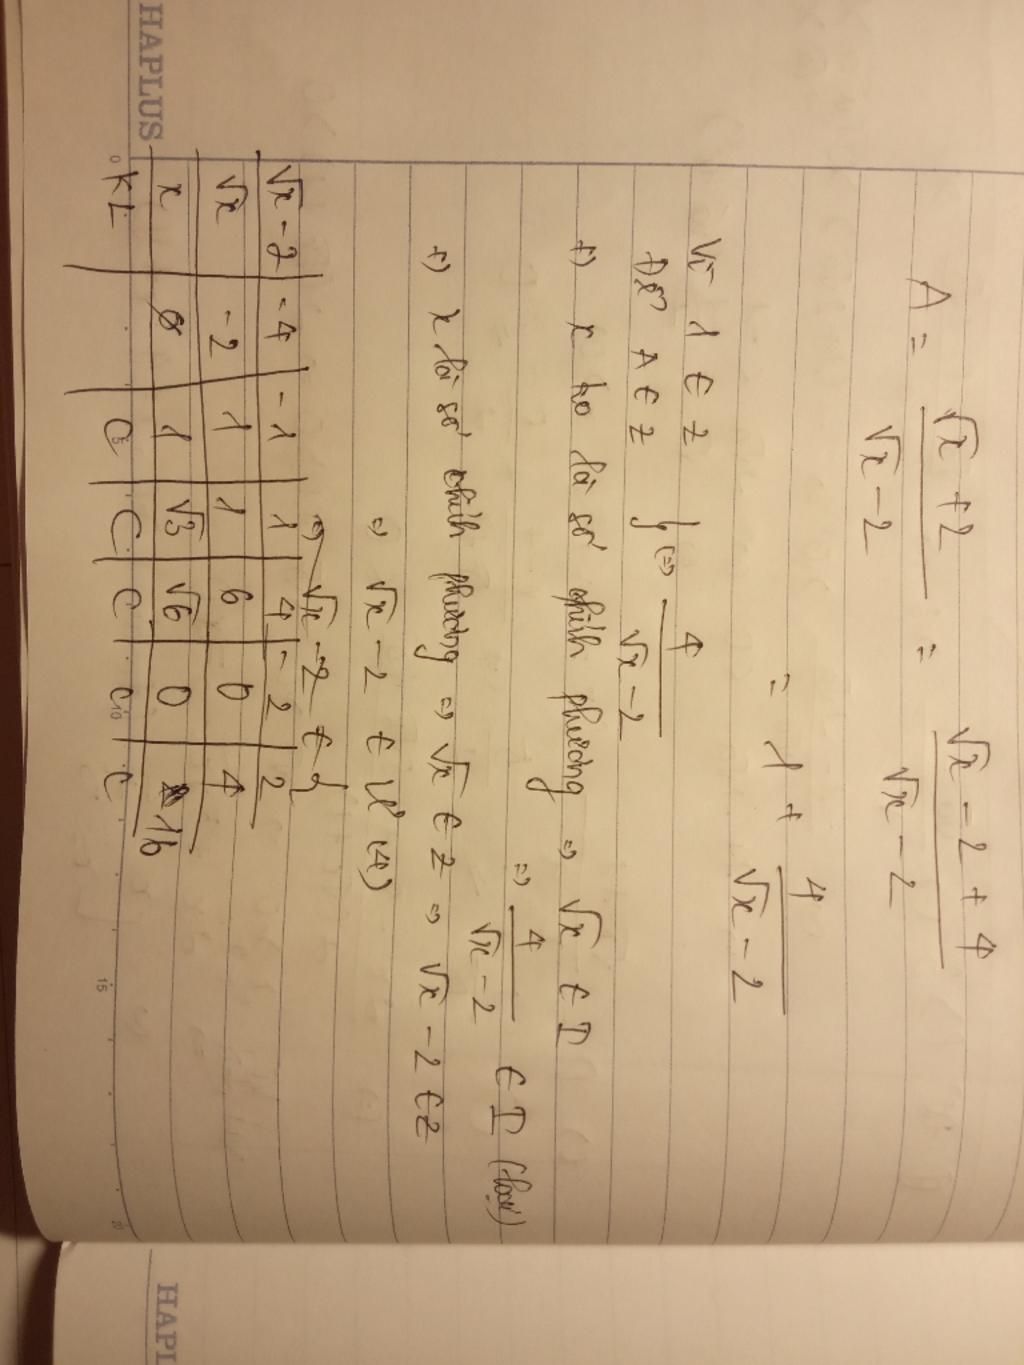 A = √x + 2 / √x - 2 = √x - 2 + 4 / √x - 2
= 1 + 4 / √x - 2
Vì 1 ∈ Z
Để A ∈ Z } ⇔ 4 / √x - 2
+) x ko là số chính phương ⇒ √x ∈ I
⇒ 4 / √x - 2 ∈ I (loại)
+) x là số chính phương ⇒ √x ∈ Z ⇒ √x - 2 ∈ Z
⇒ √x - 2 ∈ Ư (4)
⇒ √x - 2 ∈ {
√x - 2 | - 4 | - 1 | 1 | 4 | - 2 | 2
√x | - 2 | 1 | 1 | 6 | 0 | 4
x | 1 | √3 | √6 | 0 | 16
KL | C | C | C | C | C
HAPLUS
0 5 10 15 20
HAPL